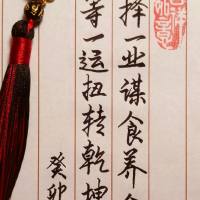 择一业谋食养
等一运扭转乾坤
癸卯